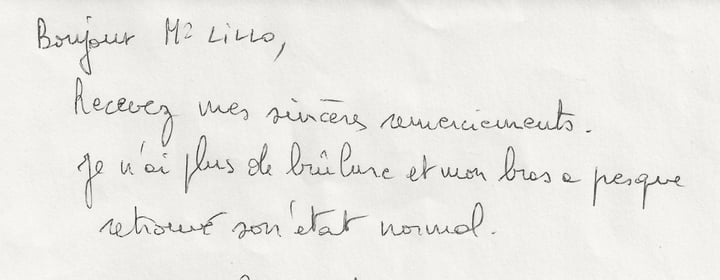 Bonjour Mr LiLLO,
Recevez mes sincères remerciements.
Je n'ai plus de brûlure et mon bras a pesque
retrouvé son état normal.